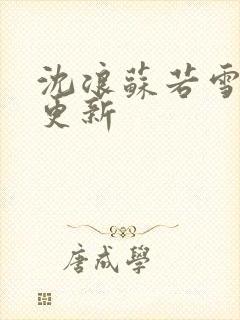 沈浪蘇若雪
更新
唐成學